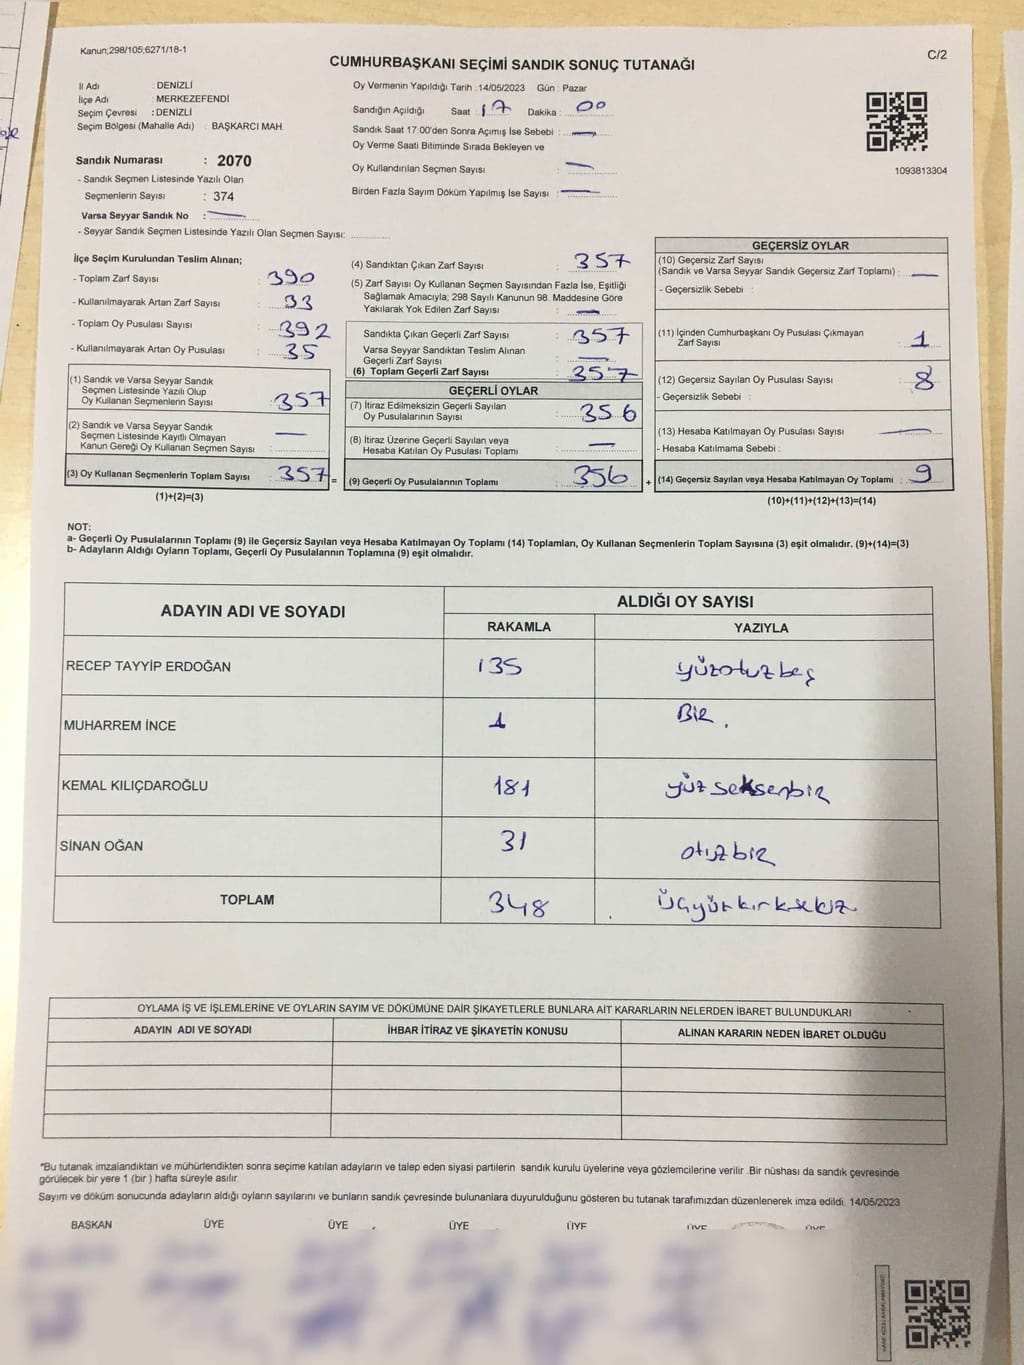 Kanun;298/105;6271/18-1
C/2
CUMHURBAŞKANI SEÇİMİ SANDIK SONUÇ TUTANAĞI
İl Adı : DENİZLİ
İlçe Adı : MERKEZEFENDİ
Seçim Çevresi : DENİZLİ
Seçim Bölgesi (Mahalle Adı) : BAŞKARCI MAH.
Sandık Numarası : 2070
- Sandık Seçmen Listesinde Yazılı Olan
Seçmenlerin Sayısı : 374
Varsa Seyyar Sandık No : —
- Seyyar Sandık Seçmen Listesinde Yazılı Olan Seçmen Sayısı: ..............
Oy Vermenin Yapıldığı Tarih :14/05/2023 Gün : Pazar
Sandığın Açıldığı Saat : 17 Dakika : 00
Sandık Saat 17.00'den Sonra Açımış İse Sebebi : —
Oy Verme Saati Bitiminde Sırada Bekleyen ve
Oy Kullandırılan Seçmen Sayısı : —
Birden Fazla Sayım Döküm Yapılmış İse Sayısı : —
1093813304
İlçe Seçim Kurulundan Teslim Alınan;
- Toplam Zarf Sayısı : 390
- Kullanılmayarak Artan Zarf Sayısı : 33
- Toplam Oy Pusulası Sayısı : 392
- Kullanılmayarak Artan Oy Pusulası : 35
(1) Sandık ve Varsa Seyyar Sandık
Seçmen Listesinde Yazılı Olup
Oy Kullanan Seçmenlerin Sayısı : 357
(2) Sandık ve Varsa Seyyar Sandık
Seçmen Listesinde Kayıtlı Olmayan
Kanun Gereği Oy Kullanan Seçmen Sayısı : —
(3) Oy Kullanan Seçmenlerin Toplam Sayısı : 357 =
(1)+(2)=(3)
(4) Sandıktan Çıkan Zarf Sayısı : 357
(5) Zarf Sayısı Oy Kullanan Seçmen Sayısından Fazla İse, Eşitliği
Sağlamak Amacıyla; 298 Sayılı Kanunun 98. Maddesine Göre
Yakılarak Yok Edilen Zarf Sayısı : —
Sandıkta Çıkan Geçerli Zarf Sayısı : 357
Varsa Seyyar Sandıktan Teslim Alınan
Geçerli Zarf Sayısı : —
(6) Toplam Geçerli Zarf Sayısı : 357
GEÇERLİ OYLAR
(7) İtiraz Edilmeksizin Geçerli Sayılan
Oy Pusulalarının Sayısı : 356
(8) İtiraz Üzerine Geçerli Sayılan veya
Hesaba Katılan Oy Pusulası Toplamı : —
(9) Geçerli Oy Pusulalarının Toplamı : 356 +
GEÇERSİZ OYLAR
(10) Geçersiz Zarf Sayısı
(Sandık ve Varsa Seyyar Sandık Geçersiz Zarf Toplamı) : —
- Geçersizlik Sebebi :
(11) İçinden Cumhurbaşkanı Oy Pusulası Çıkmayan
Zarf Sayısı : 1
(12) Geçersiz Sayılan Oy Pusulası Sayısı : 8
- Geçersizlik Sebebi :
(13) Hesaba Katılmayan Oy Pusulası Sayısı : —
- Hesaba Katılmama Sebebi :
(14) Geçersiz Sayılan veya Hesaba Katılmayan Oy Toplamı : 9
(10)+(11)+(12)+(13)=(14)
NOT:
a- Geçerli Oy Pusulalarının Toplamı (9) ile Geçersiz Sayılan veya Hesaba Katılmayan Oy Toplamı (14) Toplamları, Oy Kullanan Seçmenlerin Toplam Sayısına (3) eşit olmalıdır. (9)+(14)=(3)
b- Adayların Aldığı Oyların Toplamı, Geçerli Oy Pusulalarının Toplamına (9) eşit olmalıdır.
ADAYIN ADI VE SOYADI
ALDIĞI OY SAYISI
RAKAMLA YAZIYLA
RECEP TAYYİP ERDOĞAN 135 yüzotuzbeş
MUHARREM İNCE 1 BİR.
KEMAL KILIÇDAROĞLU 181 yüzseksenbir
SİNAN OĞAN 31 otuzbir
TOPLAM 348 üçyüzkırksekiz
OYLAMA İŞ VE İŞLEMLERİNE VE OYLARIN SAYIM VE DÖKÜMÜNE DAİR ŞİKAYETLERLE BUNLARA AİT KARARLARIN NELERDEN İBARET BULUNDUKLARI
ADAYIN ADI VE SOYADI İHBAR İTİRAZ VE ŞİKAYETİN KONUSU ALINAN KARARIN NEDEN İBARET OLDUĞU
*Bu tutanak imzalandıktan ve mühürlendikten sonra seçime katılan adayların ve talep eden siyasi partilerin sandık kurulu üyelerine veya gözlemcilerine verilir .Bir nüshası da sandık çevresinde
görülecek bir yere 1 (bir ) hafta süreyle asılır.
Sayım ve döküm sonucunda adayların aldığı oyların sayılarını ve bunların sandık çevresinde bulunanlara duyurulduğunu gösteren bu tutanak tarafımızdan düzenlenerek imza edildi. 14/05/2023
BAŞKAN ÜYE ÜYE ÜYE ÜYE ÜYE ÜYE